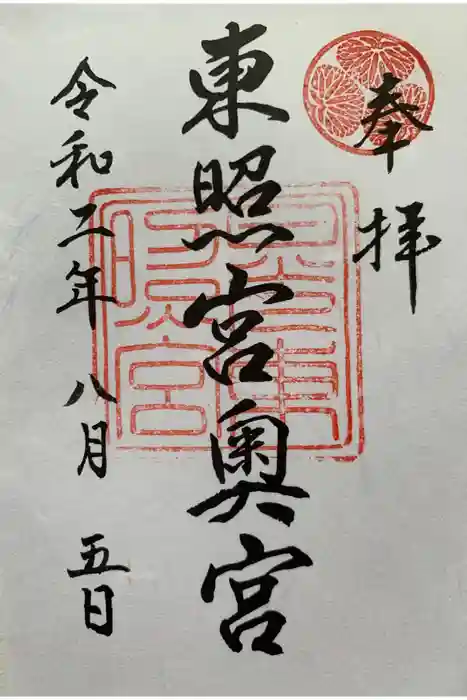 奉拝
東照宮奥宮
令和二年八月五日